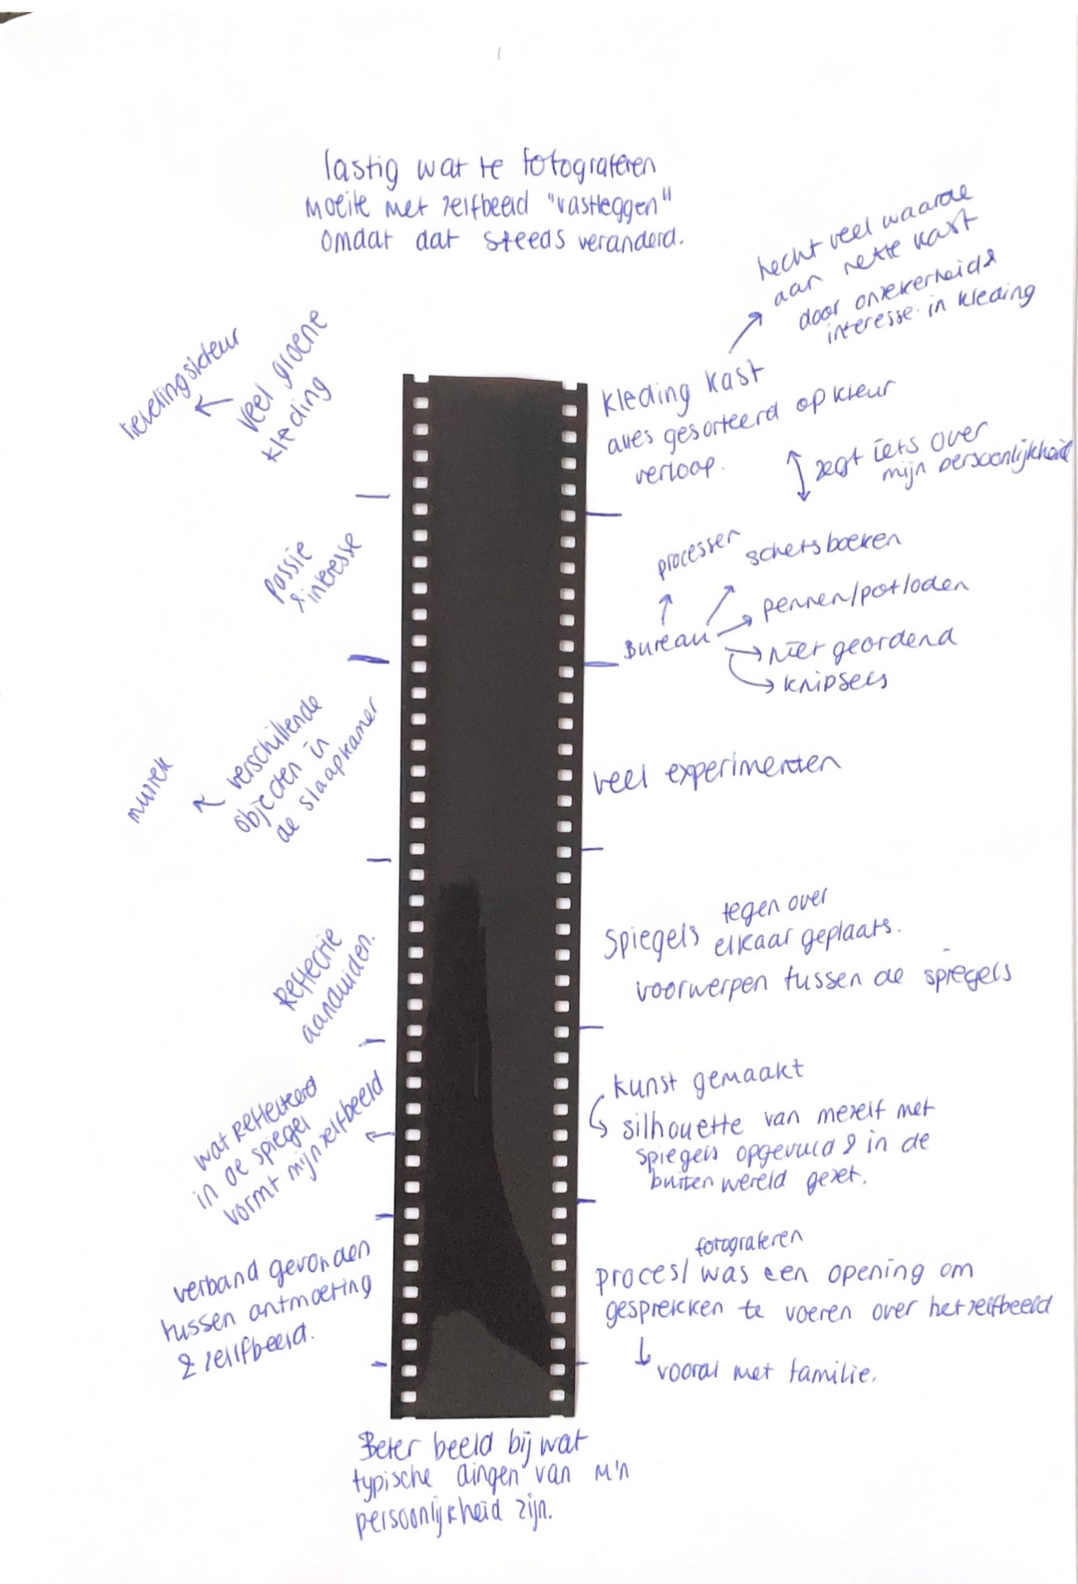 lastig wat te fotograferen
Moeite met zelfbeeld "vastleggen"
omdat dat steeds veranderd.
hecht veel waarde
aan nette kast
door onzekerheid &
interesse in kleding
kleding kast
alles gesorteerd op kleur
verloop.
zegt iets over
mijn persoonlijkheid
lievelingskleur
veel groene
kleding
passie
& interesse
processen
schetsboeken
pennen/potloden
Bureau
niet geordend
knipsels
muziek
verschillende
objecten in
de slaapkamer
veel experimenten
Reflectie
aanduiden.
Spiegels tegen over
elkaar geplaats.
voorwerpen tussen de spiegels
wat Reflecteerd
in de spiegel
vormt mijn zelfbeeld
kunst gemaakt
silhouette van mezelf met
spiegels opgevuld & in de
buiten wereld gezet.
verband gevonden
tussen ontmoeting
& zelfbeeld.
fotograferen
proces/ was een opening om
gesprekken te voeren over het zelfbeeld
vooral met familie.
Beter beeld bij wat
typische dingen van m'n
persoonlijkheid zijn.